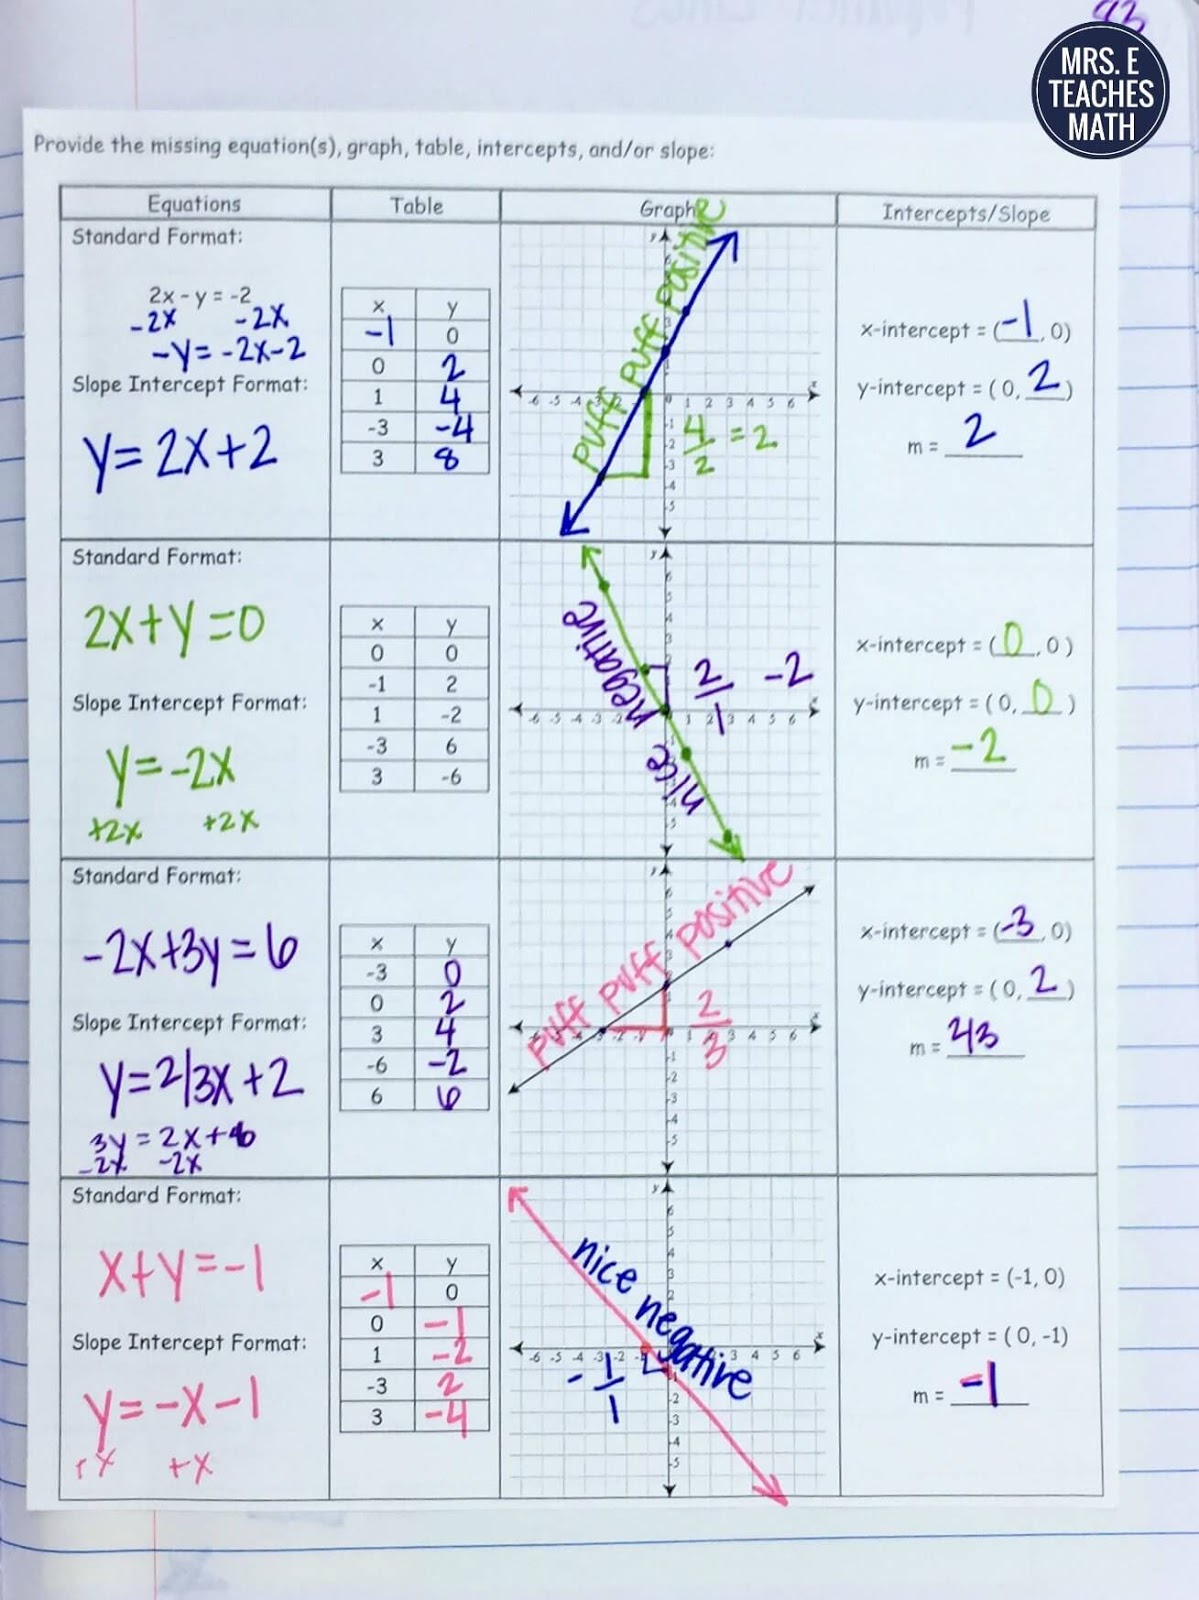 93
MRS. E
TEACHES
MATH
Provide the missing equation(s), graph, table, intercepts, and/or slope:
Equations Table Graph Intercepts/Slope
Standard Format:
2x - y = -2
-2x -2x
-y = -2x-2
Slope Intercept Format:
y = 2x+2
x y
-1 0
0 2
1 4
-3 -4
3 8
puff puff positive
y
x
-6 -5 -4 -2 1 2 3 4 5 6
-1
-2
-3
-4
-5
4/2 = 2
x-intercept = (-1, 0)
y-intercept = ( 0, 2 )
m = 2
Standard Format:
2x+y=0
Slope Intercept Format:
y=-2x
+2x +2x
x y
0 0
-1 2
1 -2
-3 6
3 -6
nice negative
y
x
-6 -5 -4 -3 -2 1 2 3 4 5 6
2/1 -2
x-intercept = ( 0, 0 )
y-intercept = ( 0, 0 )
m = -2
Standard Format:
-2x+3y=6
Slope Intercept Format:
y=2/3x+2
3y = 2x+6
-2x -2x
x y
-3 0
0 2
3 4
-6 -2
6 6
puff puff positive
y
x
1 2 3 4 5 6
-1
-2
-3
-4
-5
2/3
x-intercept = (-3, 0)
y-intercept = ( 0, 2 )
m = 2/3
Standard Format:
x+y=-1
Slope Intercept Format:
y=-x-1
+x +x
x y
-1 0
0 -1
1 -2
-3 2
3 -4
nice negative
y
x
-6 -5 -4 -3 -2 3 4 5 6
-2
-3
-4
-5
-1/1
x-intercept = (-1, 0)
y-intercept = ( 0, -1)
m = -1